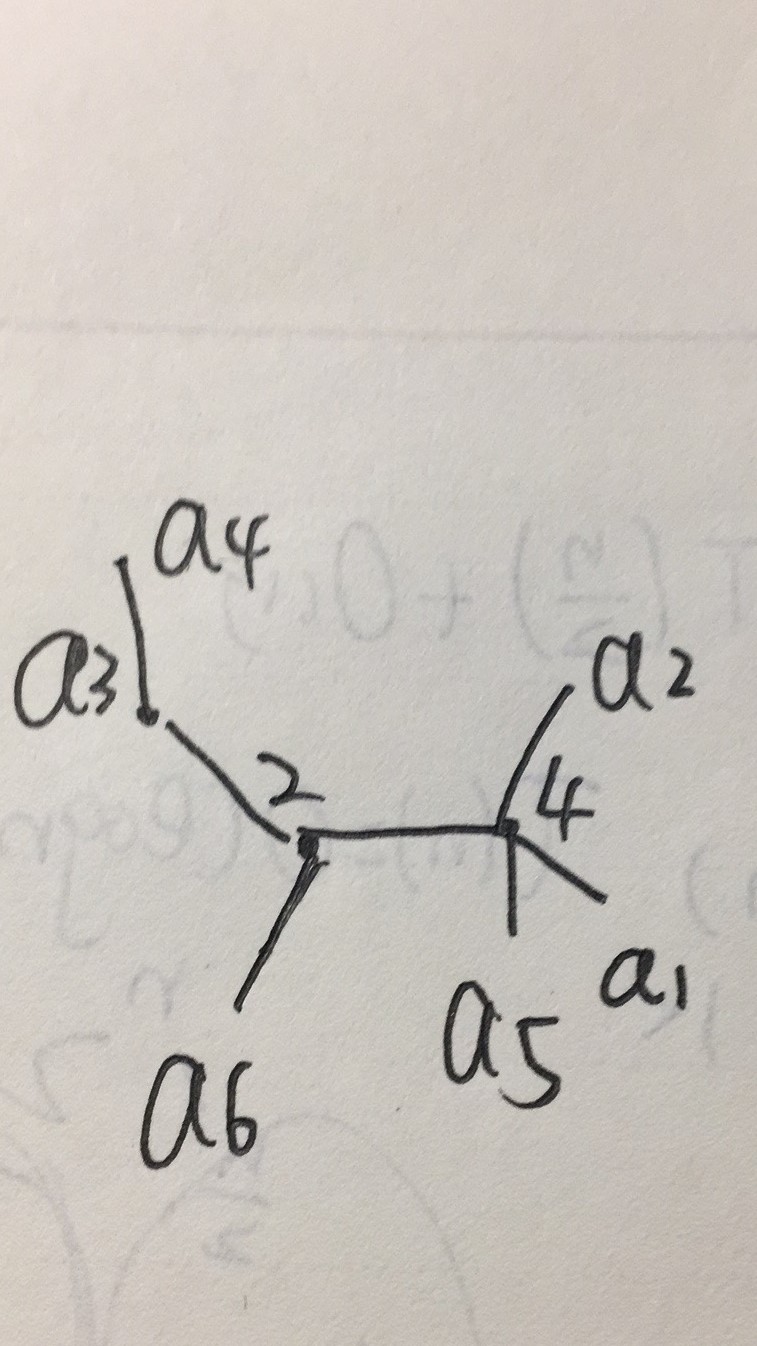 a4
a3
a2
2
4
a1
a5
a6